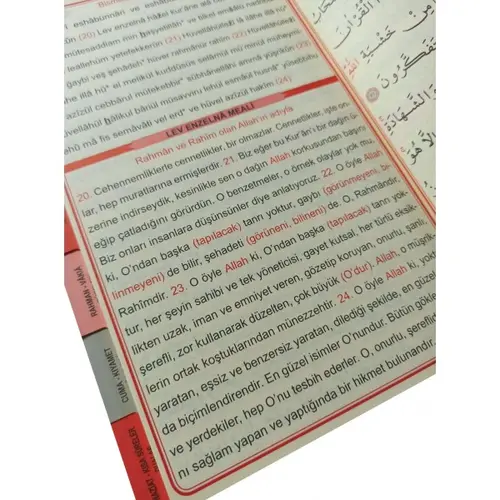 eshâbünnâri ve eshâbül
(20) Lev enzelnâ hâzel kur'âne alâ
mütesaddiam min haşyetillâh* ve tilkel emsâlü nadribühâ
leallehüm yetefekkerûn (21) Hüvellâhüllezî lâ ilâhe
gaybi veş şehâdeh* hüver rahmânür rahîm (22)
illâ hû* el melikül kuddûsüs selâmül mü'minül müheymi
azîzül cebbârul mütekebbir* sübhânellâhi ammâ yüşrikûn (23)
Hüvellâhül hâlikul bâriül müsavviru lehül esmâül husnâ* yüsebbihu
mâ fis semâvâti vel erd* ve hüvel azîzül hakîm (24)
LEV ENZELNÂ MEALİ
Rahmân ve Rahîm olan Allah'ın adıyla
20. Cehennemliklerle cennetlikler bir olmazlar. Cennetlikler, işte on-
lar, hep muratlarına ermişlerdir. 21. Biz eğer bu Kur'ân'ı bir dağın ü-
zerine indirseydik, kesinlikle sen o dağın Allah korkusundan başını
eğip çatladığını görürdün. O benzetmeler, o örnek olaylar yok mu,
Biz onları insanlara düşünsünler diye anlatıyoruz. 22. O öyle Allah
ki, O'ndan başka (tapılacak) tanrı yoktur, gaybı (görünmeyeni, bi-
linmeyeni) de bilir, şehadeti (görüneni, bilineni) de. O, Rahmândır,
Rahîmdir. 23. O öyle Allah ki, O'ndan başka (tapılacak) tanrı yok-
tur, her şeyin sahibi ve tek yöneticisi, gayet kutsal, her türlü eksik-
likten uzak, iman ve emniyet veren, gözetip koruyan, onurlu, şanlı
şerefli, zor kullanarak düzelten, çok büyük (O'dur), Allah, o müşrik-
lerin ortak koştuklarından münezzehtir. 24. O öyle Allah ki, yoktan
yaratan, eşsiz ve benzersiz yaratan, dilediği şekilde, en güzel
da biçimlendirendir. En güzel isimler O'nundur. Bütün gökler
ve yerdekiler, hep O'nu tesbih ederler. O, onurlu, şerefli
nı sağlam yapan ve yaptığında bir hikmet bulunandır
RAHMAN - VÂKIA
CUMA - KIYAMET
NAZİAT - KISA SÛRELER
الْقُرْاٰنَ
مِنْ خَشْيَةِ
وَالشَّهَادَةِ
اِلَّا هُوَ